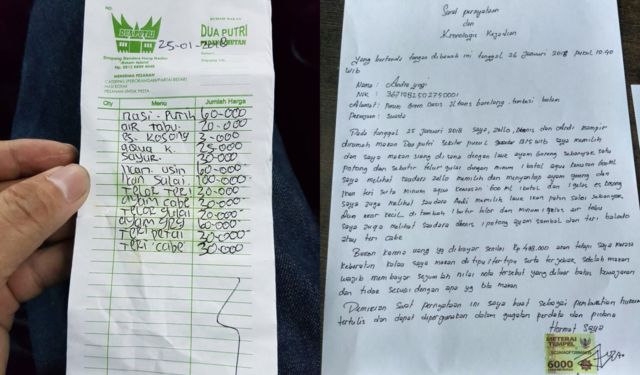 RUMAH MAKAN
DUA PUTRI
NO.
DUA PUTRI
25-01-2018
Simpang Bandara Hang Nadim
Batam Island
MENERIMA PESANAN
CATERING (PERORANGAN/PARTAI BESAR)
NASI KOTAK
PESANAN UNTUK PESTA
Qty Menu Jumlah Harga
nasi. Putih 60-000
air tabu. 20-000
es. kosong 3-000
25-000
sayur. 30-000
Ikan. 60-000
Ikan Sulai 100-000
Telor Teri 20-000
ayam cabe 20-000
Telor gulai 20-000
60-000
Teri petai 30-000
Teri cabe 30-000
Surat pernyataan
dan
Kronologis Kejadian
Yang bertanda tangan dibawah ini tanggal 26 Januari 2018 Pukul 10.40
WIB
Nama : Andra yogi
NIK : 3671082502750001
Alamat: Perum Green Oasis Jl trans barelang. tembesi batam
Pekerjaan : Swasta
Pada tanggal 25 Januari 2018 saya, Zello, dan Andi mampir
dirumah makan Dua putri sekitar pukul WIB saya memilih
dan saya makan siang di sana dengan lauk ayam goreng sebanyak satu
potong dan sebutir telur gulai dengan minum 1 botol aqua kemasan
saya melihat saudara Zello memilih dan menyantap ayam goreng dan
ikan teri serta minum aqua kemasan 600 ml 1 botol dan 1 gelas es kosong
saya juga melihat saudara Andi memilih lauk ikan
ekor kecil di tambah 1 butir telor dan minum 1 gelas air tabu
saya juga melihat saudara 1 potong ayam sambal dan teri balado
atau teri cabe
Bahwa karena uang yg dibayar senilai Rp 418.000 akan tetapi saya merasa
keberatan kalau saya makan di tipu / tertipu serta terjebak, setelah makan
wajib membayar sejumlah nilai nota tersebut yang diluar batas kewajaran
dan tidak sesuai dengan apa yg kita makan
Demikian Surat pernyataan ini saya buat sebagai pembuktian hukum
tertulis dan dapat dipergunakan dalam gugatan perdata dan pidana
Hormat Saya
METERAI
TEMPEL
6000